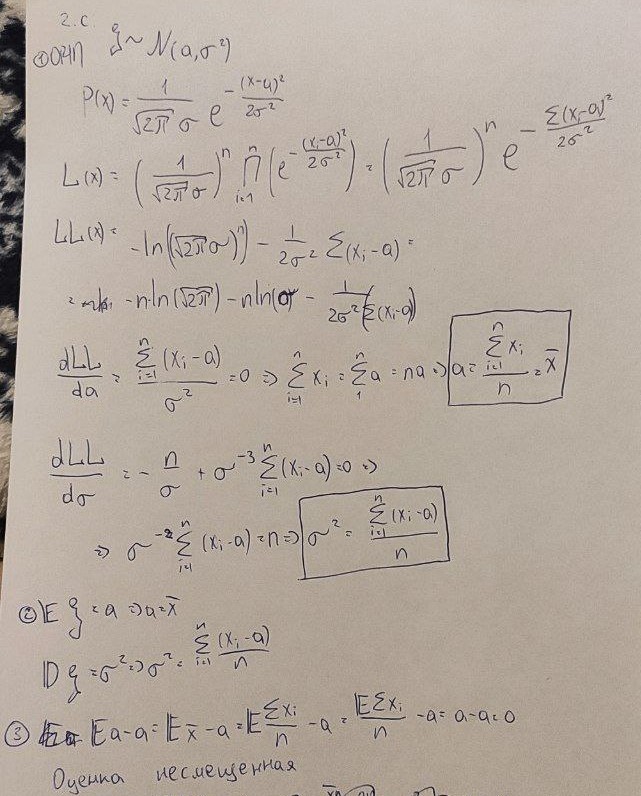 2.c.
① ОМП ξ ~ N(a, σ²)
P(x) = 1/(√2π σ) e^(-(x-a)²/2σ²)
L(x) = (1/(√2π σ))^n ∏_{i=1}^{n} (e^(-(x_i-a)²/2σ²)) = (1/(√2π σ))^n e^(-Σ(x_i-a)²/2σ²)
LL(x) = -ln((√2π σ)^n) - 1/2σ² Σ(x_i-a) =
= -n·ln(√2π) - n ln(σ - 1/2σ² (Σ(x_i-a))
dLL/da = Σ_{i=1}^{n} (x_i-a)/σ² = 0 => Σ_{i=1}^{n} x_i = Σ_{1}^{n} a = na => a = Σ_{i=1}^{n} x_i/n = x̄
dLL/dσ = -n/σ + σ^-3 Σ_{i=1}^{n} (x_i-a) = 0 =>
=> σ^-2 Σ_{i=1}^{n} (x_i-a) = n => σ² = Σ_{i=1}^{n} (x_i-a)/n
② 𝔼ξ = a => a = x̄
𝔻ξ = σ² => σ² = Σ_{i=1}^{n} (x_i-a)/n
③ 𝔼a - a = 𝔼x̄ - a = 𝔼 Σx_i/n - a = 𝔼Σx_i/n - a = a - a = 0
Оценка несмещенная